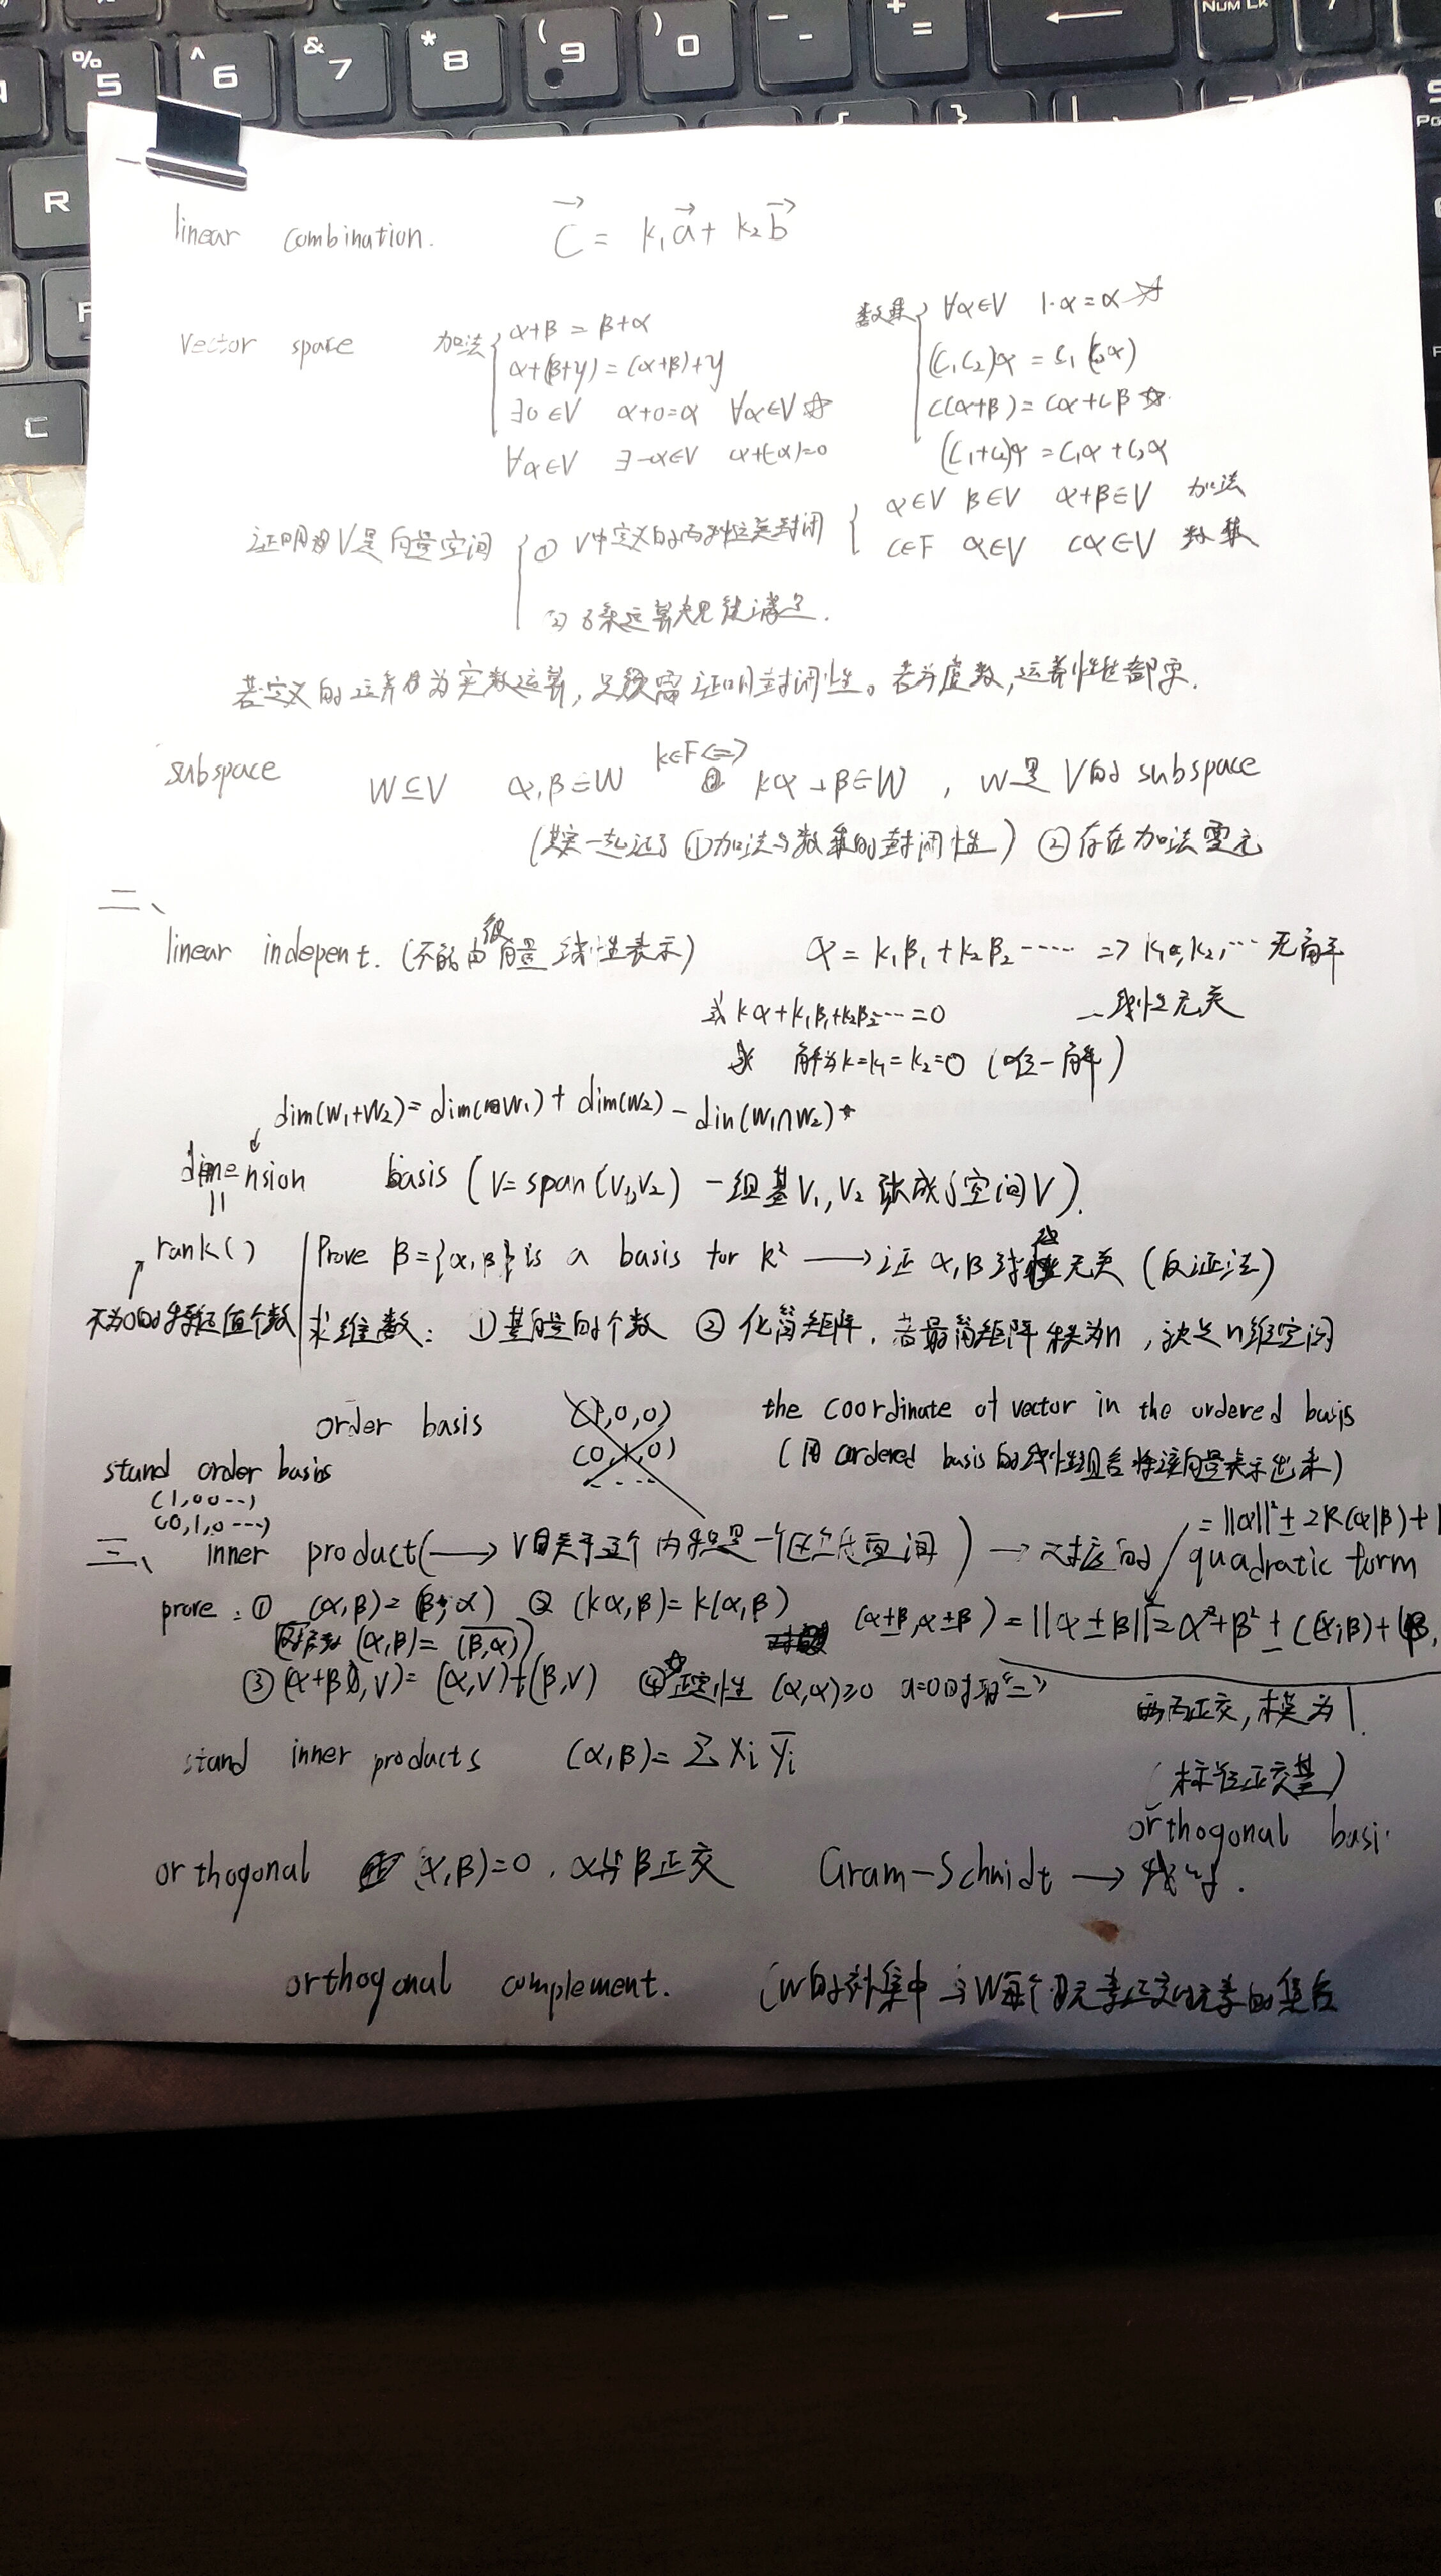 % 5 ^ 6 & 7 * 8 ( 9 ) 0 - + = ← Num Lk
R
C
一
linear combination. C = k₁a + k₂b
vector space 加法 { α+β = β+α
α+(β+γ) = (α+β)+γ
∃0∈V α+0=α ∀α∈V ☆
∀α∈V ∃-α∈V α+(-α)=0
数乘 { ∀α∈V 1·α=α ☆
(C₁C₂)α = C₁(C₂α)
C(α+β) = Cα+Cβ ☆
(C₁+C₂)α = C₁α+C₂α
证明 V是向量空间 { ① V中定义的两种运算封闭 { α∈V β∈V α+β∈V 加法
C∈F α∈V Cα∈V 数乘
② 8条运算规律满足.
若定义的运算为实数运算, 只需证明封闭性。若为虚数, 运算性 都要.
subspace W⊆V α,β∈W k∈F <=> kα+β∈W, W是V的subspace
(其实一起证了 ①加法与数乘的封闭性) ②存在加法零元
二、
linear indepent. (不能由 向量 线性表示) α = k₁β₁+k₂β₂ ····· => k₁,k₂,··· 无解
或 kα+k₁β₁+k₂β₂···=0 线性无关
解为k=k₁=k₂=0 (唯一解)
dim(W₁+W₂)=dim(W₁)+dim(W₂)-dim(W₁∩W₂)*
dimension basis (V=span(V₁,V₂) 一组基V₁,V₂ 张成了空间V).
||
rank() Prove β={α,β} is a basis for R² → 证 α,β 线性无关 (反证法)
不为0的特征值个数 求维数: ①基向量的个数 ② 化简矩阵, 若最简矩阵秩为n, 就是n维空间
order basis (1,0,0) the coordinate of vector in the ordered basis
(0,1,0) (用 ordered basis的线性组合将该向量表示出来)
stand order basis
(1,00--)
(0,1,0---)
= ||α||² ± 2R(α|β)+
三、 inner product(→ V 关于这个内积是一个 空间) → 对应的 quadratic form
prove: ① (α,β)=(β,α) ② (kα,β)=k(α,β) (α±β,α±β)=||α±β||²=α²+β²±(α,β)+(β,
(α,β)=(β,α)
③ (α+β,V)=(α,V)+(β,V) ④☆正定性 (α,α)≥0 α=0时取"="
两两正交, 模为1.
stand inner products (α,β)=Σxiȳi
(标准正交基)
orthogonal basi
orthogonal (α,β)=0. α与β正交 Gram-Schmidt →
orthogonal complement. (W的补集中与W每个元素正交的元素的集合